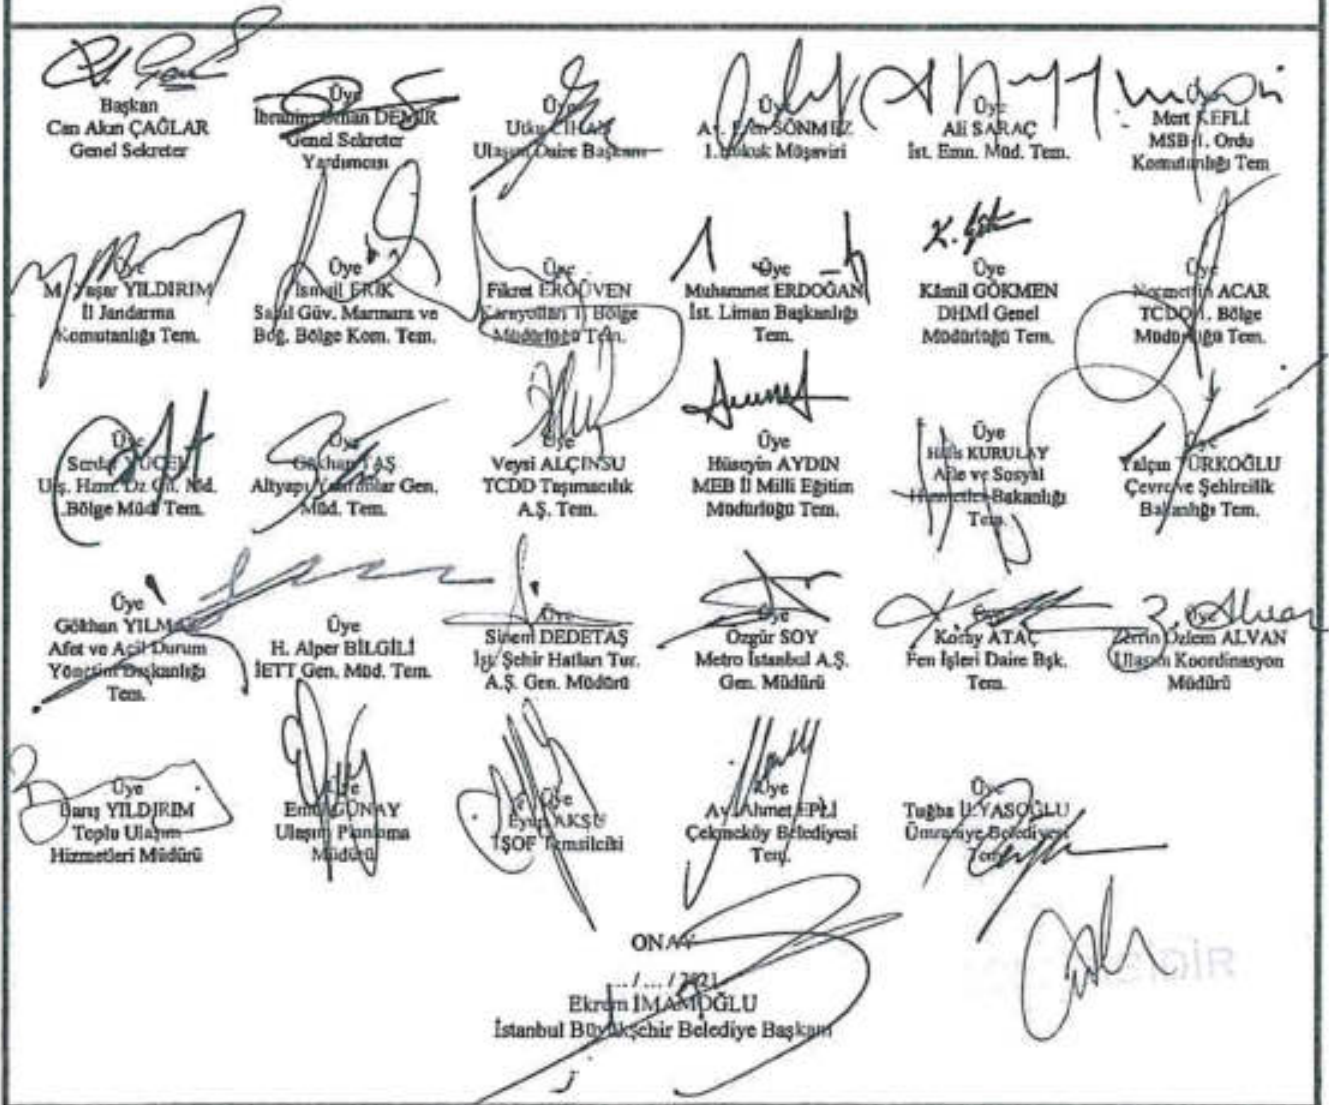 Başkan
Can Akın ÇAĞLAR
Genel Sekreter
Üye
İbrahim Orhan DEMİR
Genel Sekreter
Yardımcısı
Üye
Utku CİHAN
Ulaşım Daire Başkanı
Üye
Av. Eren SÖNMEZ
1. Hukuk Müşaviri
Üye
Ali SARAÇ
İst. Emn. Müd. Tem.
Üye
Mert KEFLİ
MSB 1. Ordu
Komutanlığı Tem
Üye
M. Yaşar YILDIRIM
İl Jandarma
Komutanlığı Tem.
Üye
İsmail ERİK
Sahil Güv. Marmara ve
Boğ. Bölge Kom. Tem.
Üye
Fikret ERGÜVEN
Karayolları 1. Bölge
Müdürlüğü Tem.
Üye
Muhammet ERDOĞAN
İst. Liman Başkanlığı
Tem.
K. Gök
Üye
Kâmil GÖKMEN
DHMİ Genel
Müdürlüğü Tem.
Üye
Necmettin ACAR
TCDD 1. Bölge
Müdürlüğü Tem.
Üye
Serdar YÜCEL
Ulş. Hzm. Dz
Bölge Müd. Tem.
Üye
Gökhan TAŞ
Altyapı Yatırımlar Gen.
Müd. Tem.
Üye
Veysi ALÇINSU
TCDD Taşımacılık
A.Ş. Tem.
Üye
Hüseyin AYDIN
MEB İl Milli Eğitim
Müdürlüğü Tem.
Üye
KURULAY
Aile ve Sosyal
Hizmetler Bakanlığı
Tem.
Üye
Yalçın TÜRKOĞLU
Çevre ve Şehircilik
Bakanlığı Tem.
Üye
Gökhan YILMAZ
Afet ve Acil Durum
Yönetim Başkanlığı
Tem.
Üye
H. Alper BİLGİLİ
İETT Gen. Müd. Tem.
Üye
Sinem DEDETAŞ
İşt. Şehir Hatları Tur.
A.Ş. Gen. Müdürü
Üye
Özgür SOY
Metro İstanbul A.Ş.
Gen. Müdürü
Üye
Koray ATAÇ
Fen İşleri Daire Bşk.
Tem.
Z. Alvan
Üye
Zerrin Özlem ALVAN
Ulaşım Koordinasyon
Müdürü
Üye
Barış YILDIRIM
Toplu Ulaşım
Hizmetleri Müdürü
Üye
Emre GÜNAY
Ulaşım Planlama
Müdürü
Üye
Eyüp AKSU
TŞOF Temsilcisi
Üye
Av. Ahmet EPLİ
Çekmeköy Belediyesi
Tem.
Üye
Tuğba İLYASOĞLU
Ümraniye Belediyesi
Tem.
ONAY
... / ... / 2021
Ekrem İMAMOĞLU
İstanbul Büyükşehir Belediye Başkanı